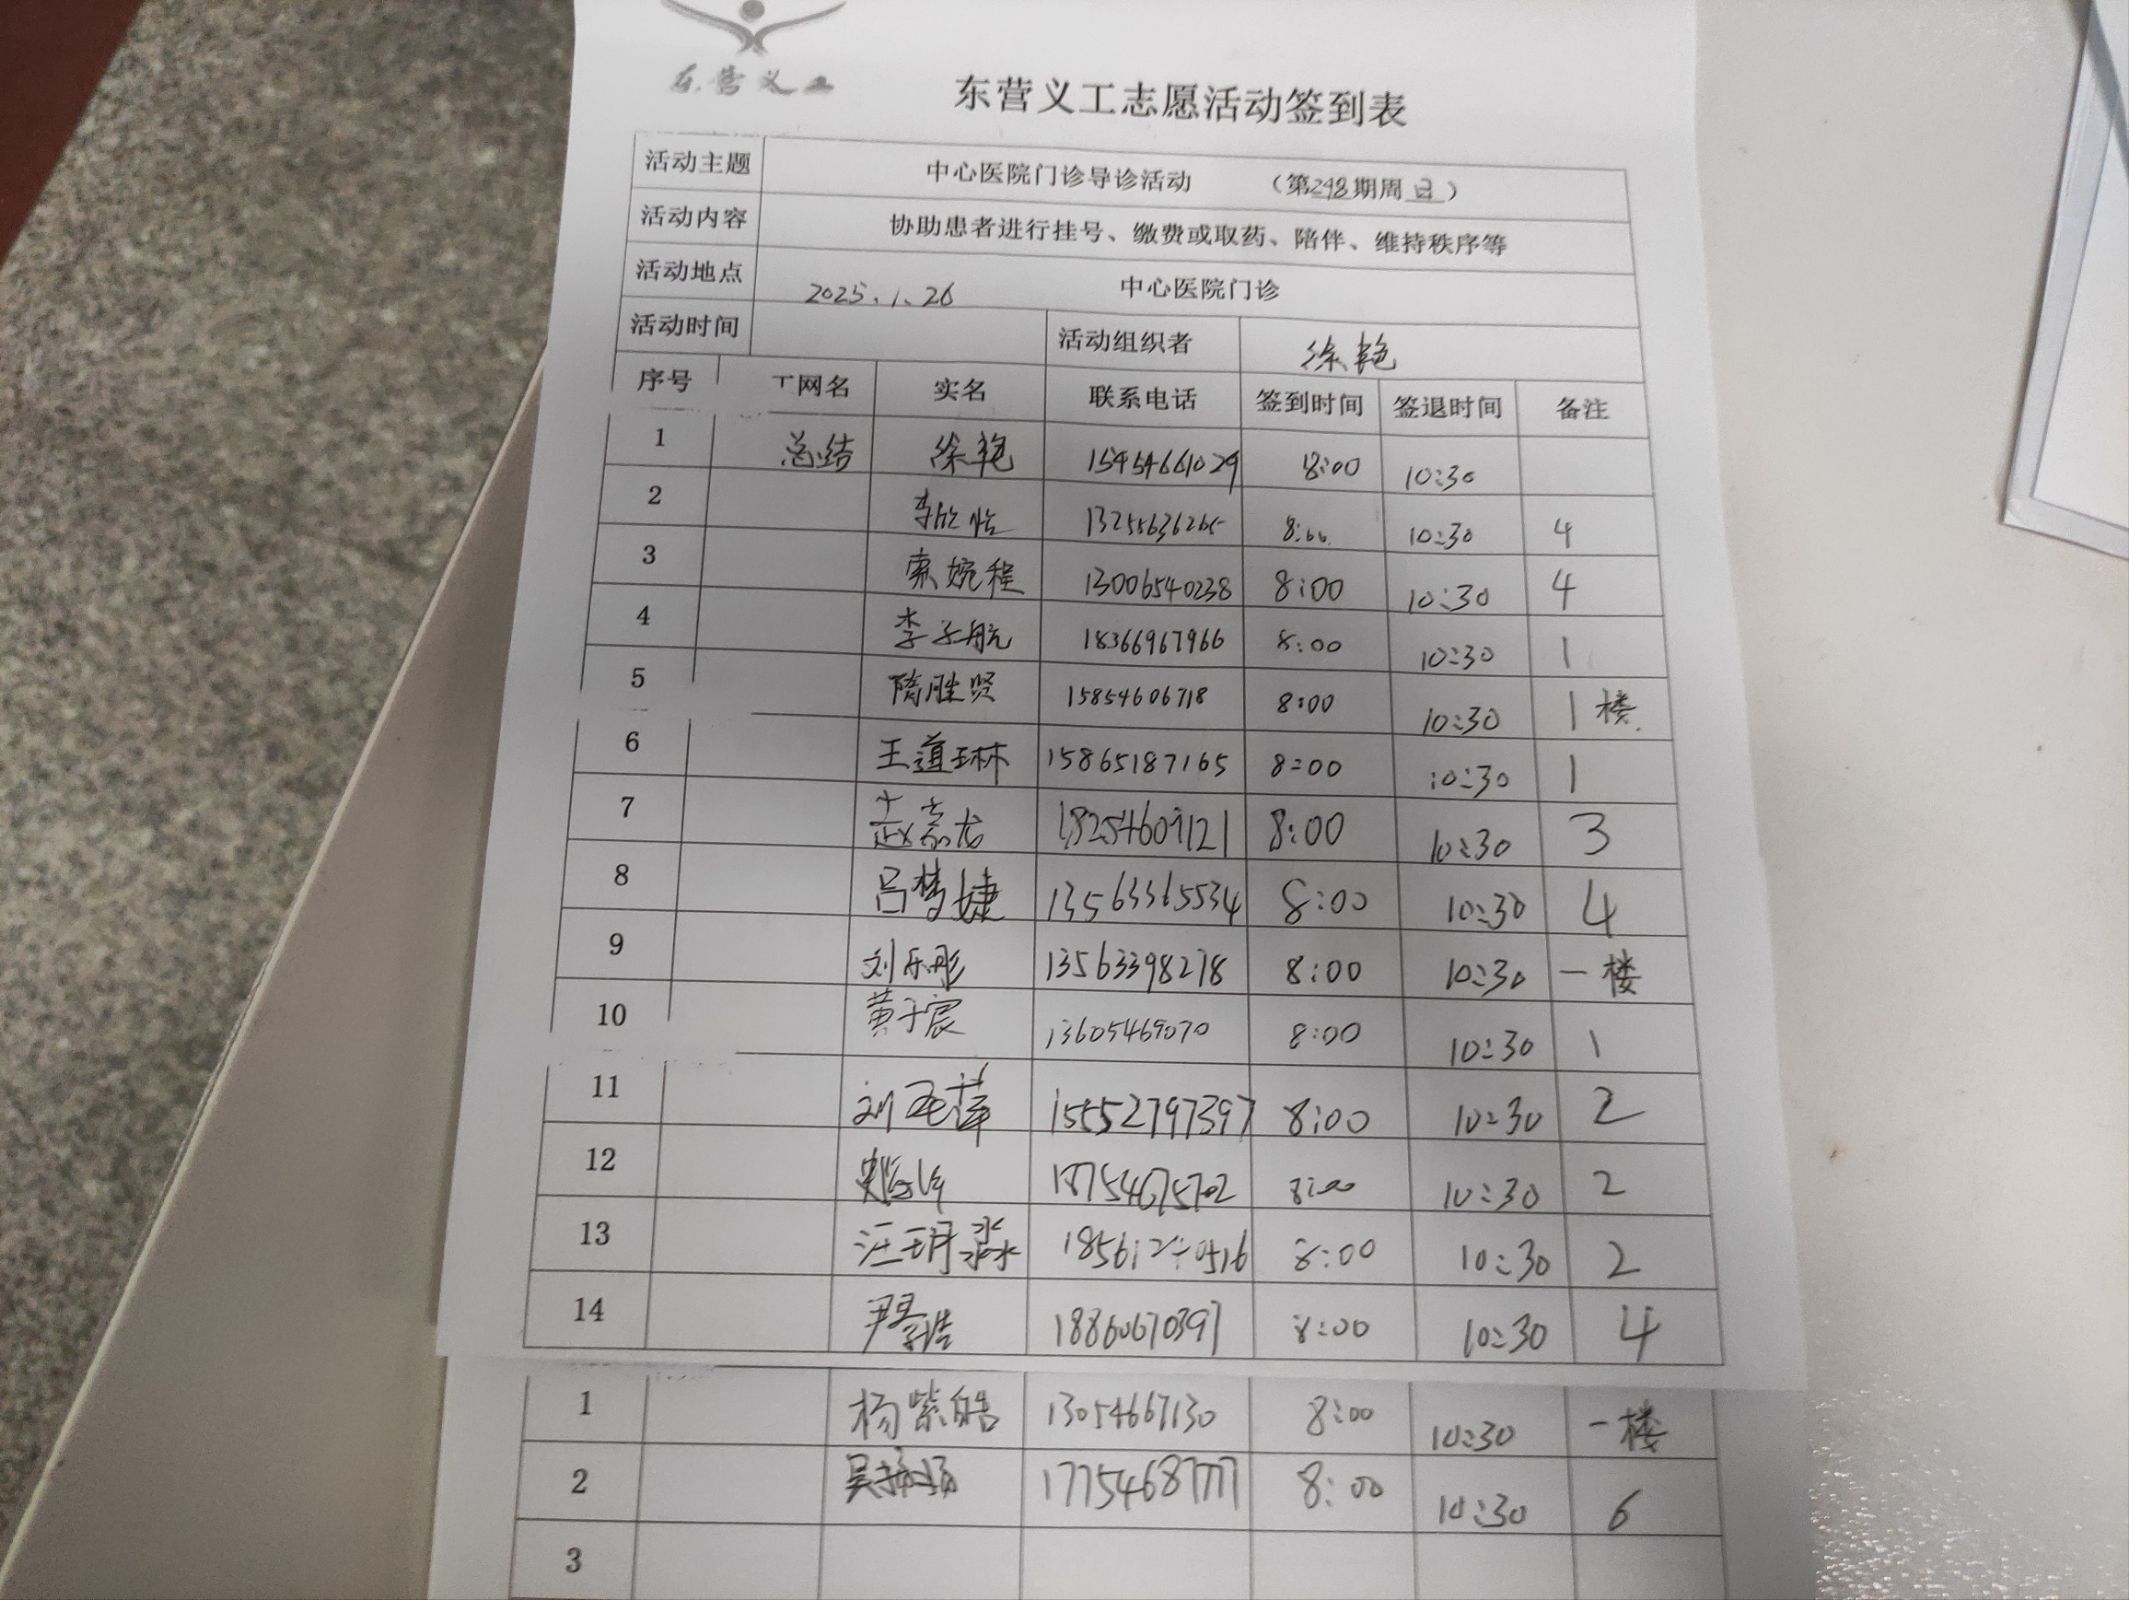 东营义工
东营义工志愿活动签到表
活动主题 中心医院门诊导诊活动 （第298期周日）
活动内容 协助患者进行挂号、缴费或取药、陪伴、维持秩序等
活动地点 中心医院门诊
活动时间 2025.1.26 活动组织者 徐艳
序号 网名 实名 联系电话 签到时间 签退时间 备注
1 总结 徐艳 15454661029 8:00 10:30
2 李欣怡 13255636265 8:00 10:30 4
3 索婉程 13006540238 8:00 10:30 4
4 李子航 18366967966 8:00 10:30 1
5 隋胜贤 15854606718 8:00 10:30 1楼
6 王道琳 15865187165 8:00 10:30 1
7 赵嘉龙 18254609121 8:00 10:30 3
8 吕梦婕 13563365534 8:00 10:30 4
9 刘乐彤 13563398278 8:00 10:30 一楼
10 黄子宸 13605469070 8:00 10:30 1
11 15552797397 8:00 10:30 2
12 18754675702 8:00 10:30 2
13 汪玥淼 8:00 10:30 2
14 18860670397 8:00 10:30 4
1 杨紫皓 13054667130 8:00 10:30 一楼
2 17754687777 8:00 10:30 6
3